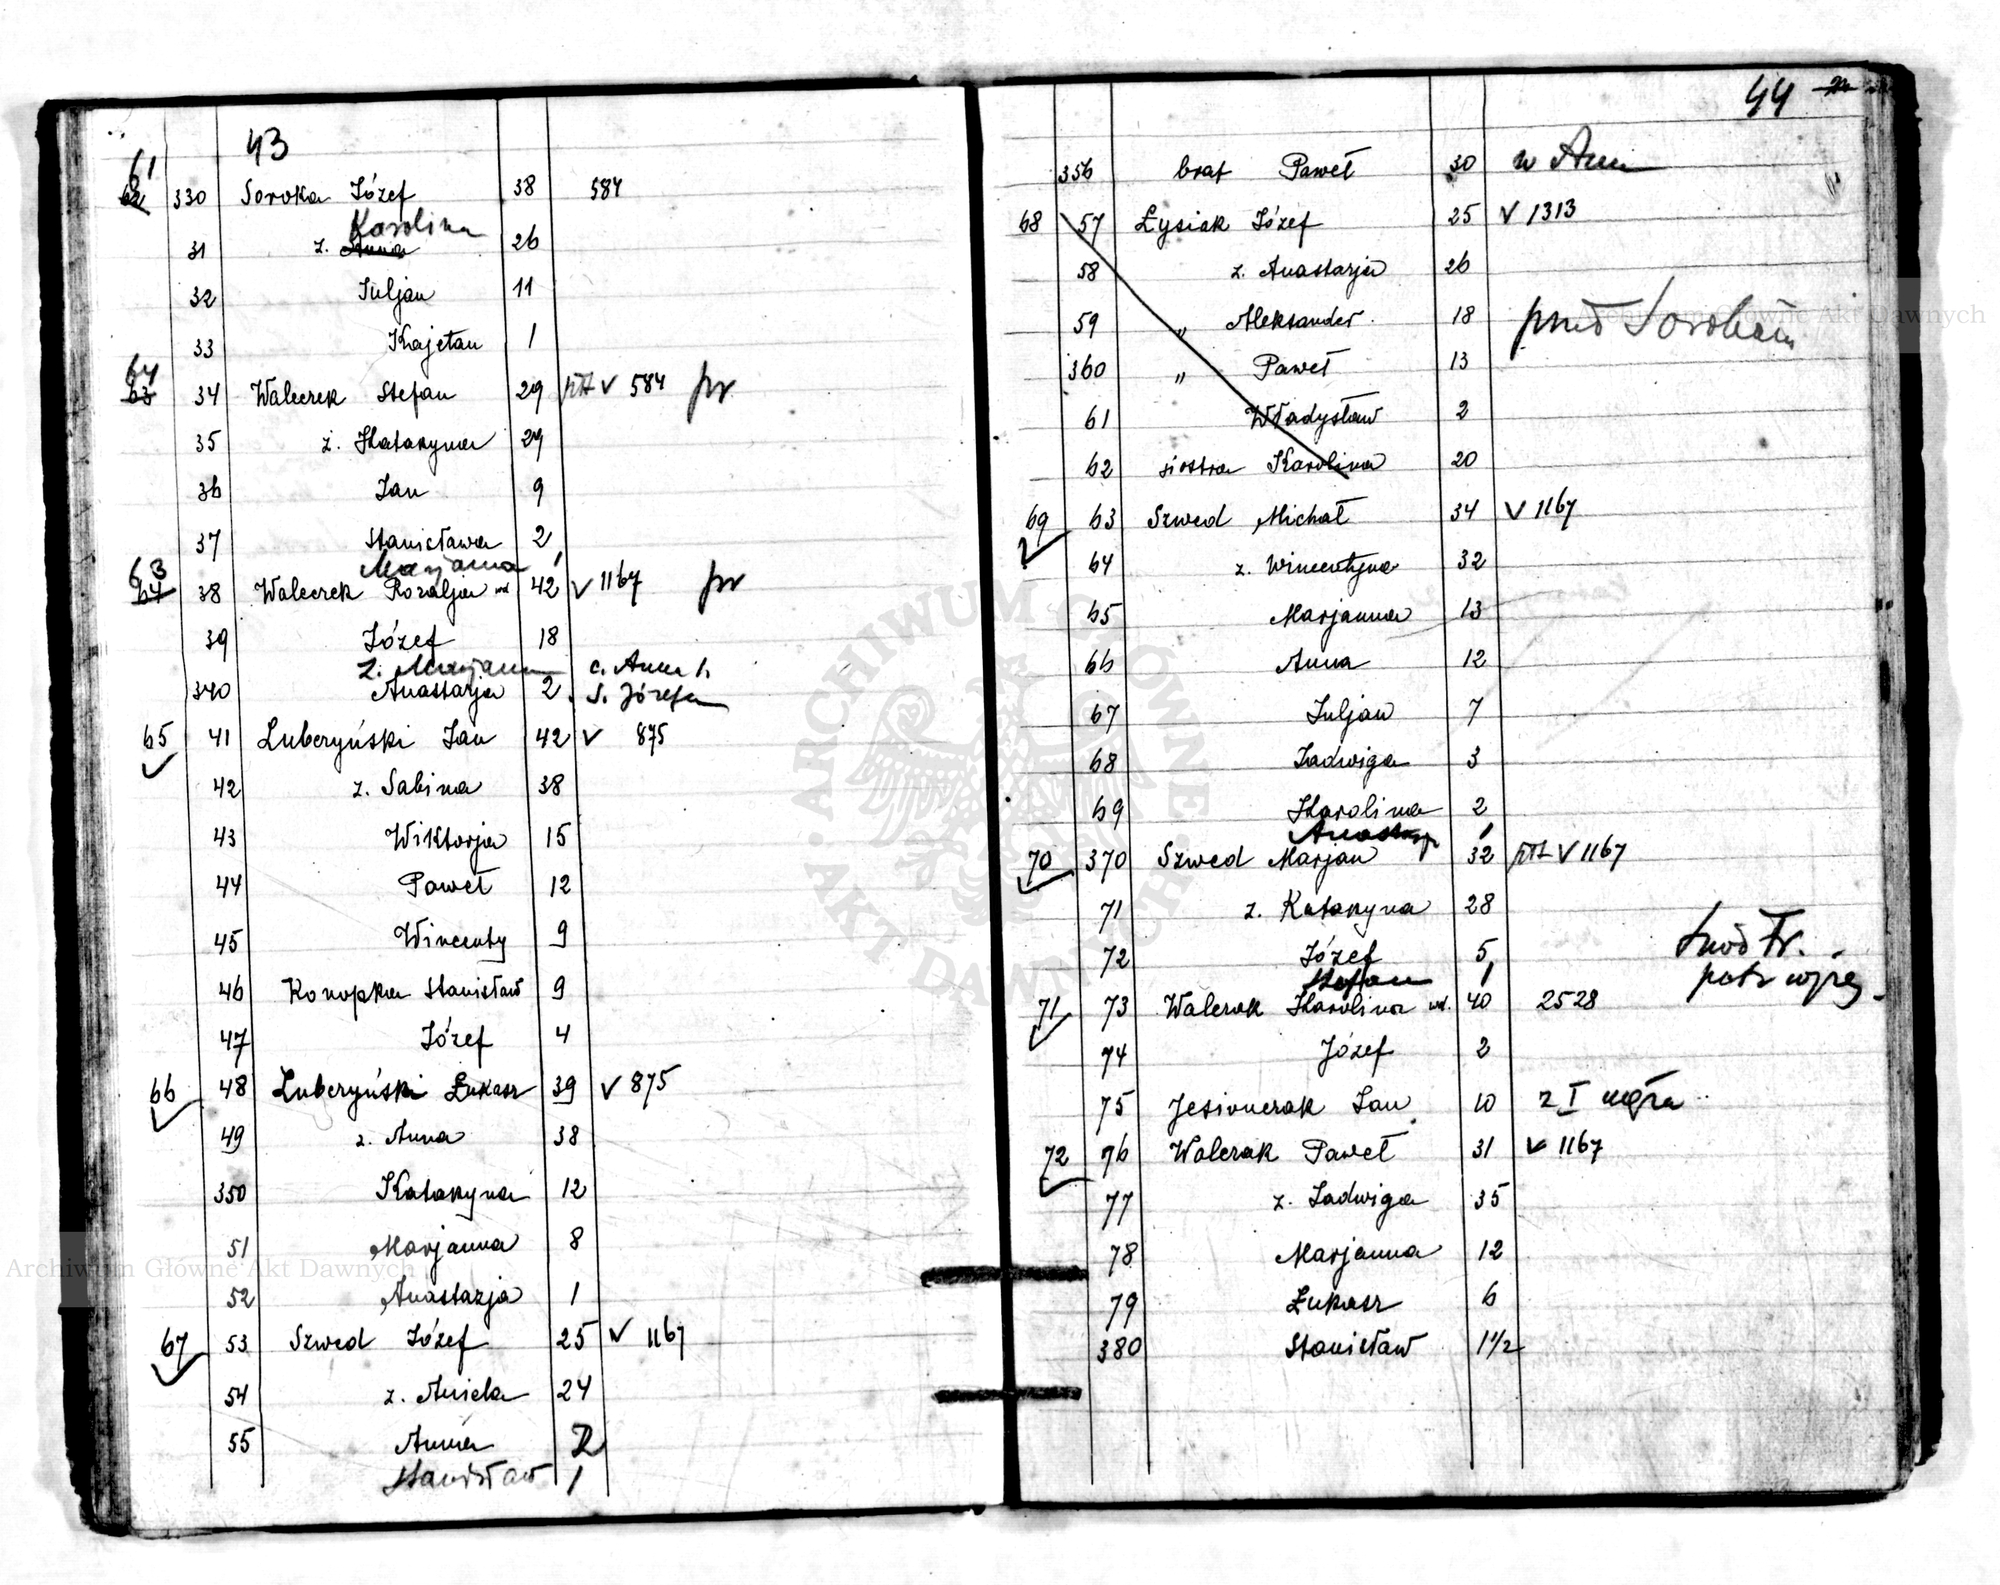 43
61
62 330 Soroka Józef 38 584
Karolina
31 z. Anna 26
32 Juljan 11
33 Kajetan 1
64
63 34 Walczek Stefan 29 V 584 pr
35 ż. Katarzyna 29
36 Jan 9
37 Stanisława 2
Marjanna 1
63
64 38 Walczek Rozalja wd 42 V 1167 pr
39 Józef 18
ż. Marjanna c. Anna 1.
340 Anastazja 2 s. Józefa
65 41 Luberzyński Jan 42 V 875
42 ż. Sabina 38
43 Wiktorja 15
44 Paweł 12
45 Wincenty 9
46 Konopka Stanisław 9
47 Józef 4
66 48 Luberzyński Łukasz 39 V 875
49 ż. Anna 38
350 Katarzyna 12
51 Marjanna 8
52 Anastazja 1
67 53 Szwed Józef 25 V 1167
54 ż. Aniela 24
55 Anna 2
Stanisław 1
44
356 brat Paweł 30 w Am
68 57 Łysiak Józef 25 V 1313
58 ż. Anastazja 26
59 " Aleksander 18
360 " Paweł 13
61 Władysław 2
62 siostra Karolina 20
69 63 Szwed Michał 34 V 1167
64 ż. Wincentyna 32
65 Marjanna 13
66 Anna 12
67 Juljan 7
68 Jadwiga 3
69 Karolina 2
Anastazja 1
70 370 Szwed Marjan 32 V 1167
71 ż. Katarzyna 28
72 Józef 5
Stefan 1
71 73 Walczak Karolina wd. 40 2528
74 Józef 2
75 Jesionczak Jan 10 z I męża
72 76 Walczak Paweł 31 V 1167
77 ż. Jadwiga 35
78 Marjanna 12
79 Łukasz 6
380 Stanisław 1 1/2
Archiwum Główne Akt Dawnych
Archiwum Główne Akt Dawnych
ARCHIWUM GŁÓWNE AKT DAWNYCH